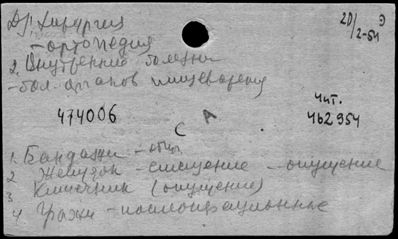 Др. Хирургия
20/2-54
Э
- ортопедия
2. Внутренние болезни
- бол. органов пищеварения
474006
Чит.
462954
С А
1. Бандажи - общ.
2. Желудок - смещение - опущение
3 Кишечник (опущение)
4 Грыжи - послеоперационные